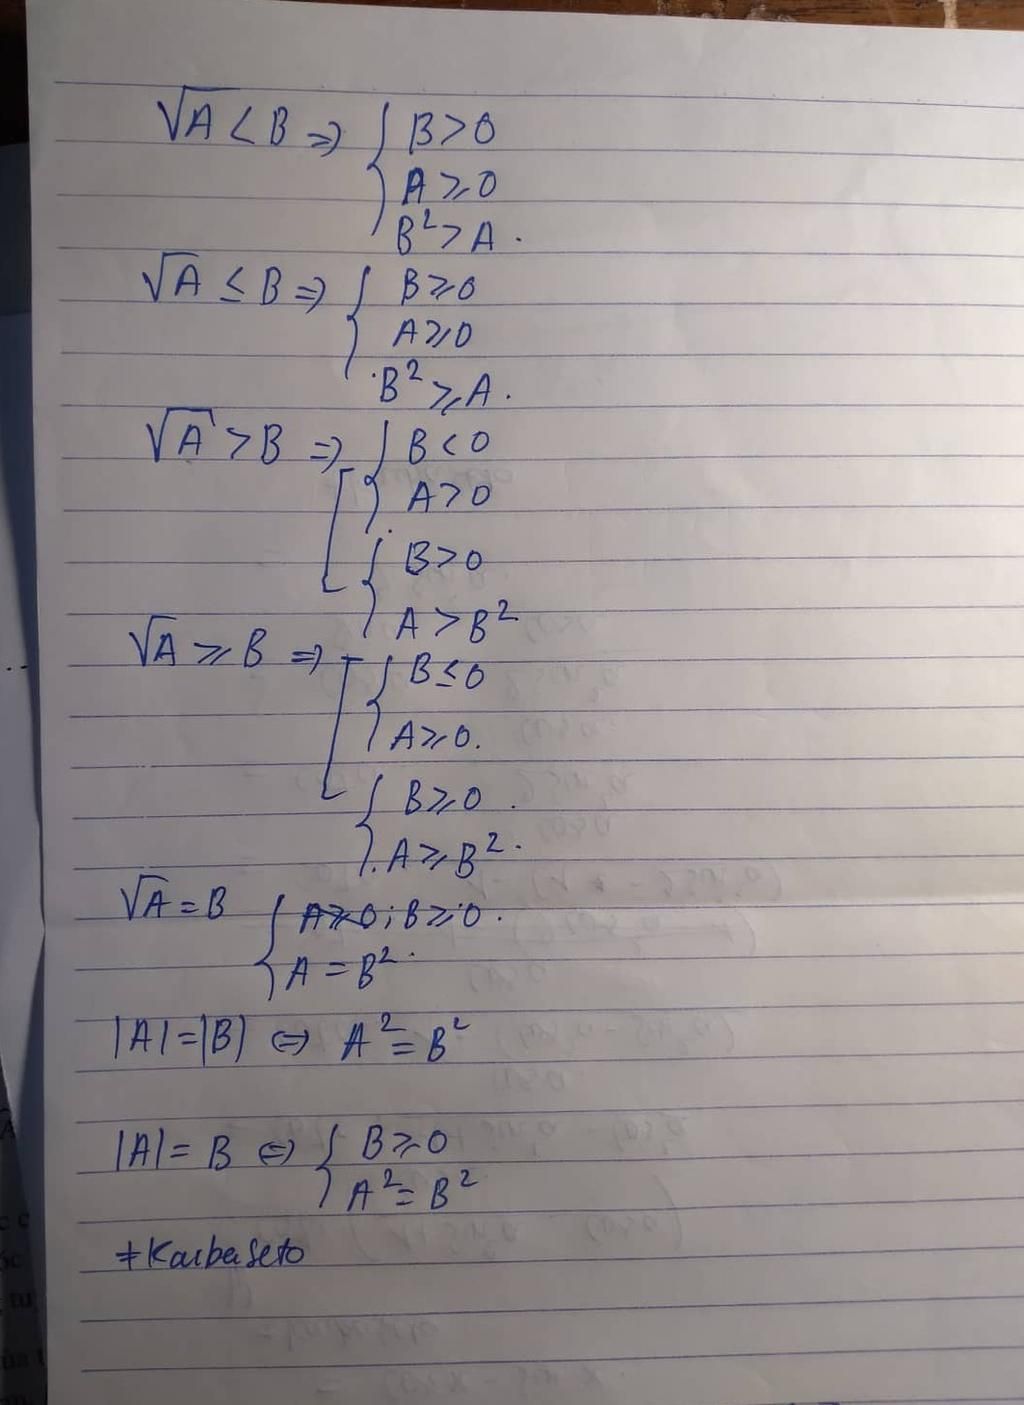 √A < B ⇒ { B > 0
A ⩾ 0
B² > A.
√A ≤ B ⇒ { B ⩾ 0
A ⩾ 0
B² ⩾ A.
√A > B ⇒ [ { B < 0
A > 0
{ B > 0
A > B²
√A ⩾ B ⇒ [ { B ≤ 0
A ⩾ 0.
{ B ⩾ 0.
A ⩾ B².
√A = B { A ⩾ 0; B ⩾ 0.
A = B².
|A| = |B| ⇔ A² = B²
|A| = B ⇔ { B ⩾ 0
A² = B²
#Kaibaseto